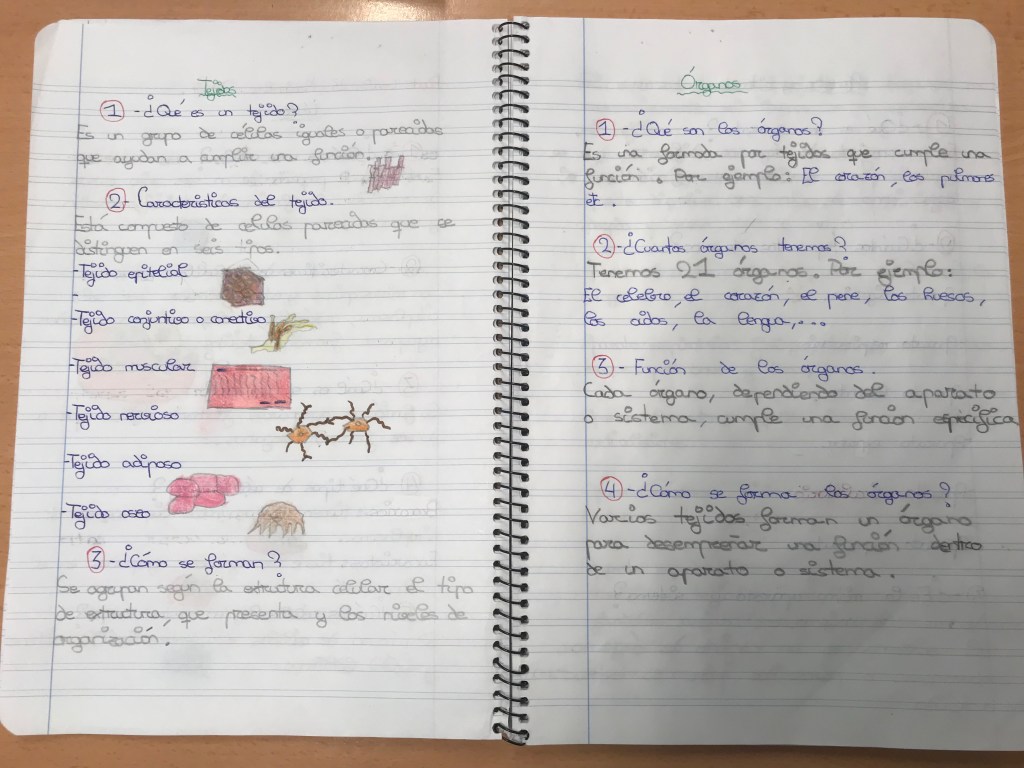 Tejidos
1 - ¿Qué es un tejido?
Es un grupo de células iguales o parecidas
que ayudan a cumplir una función.
2 - Características del tejido.
Está compuesto de células parecidas que se
distinguen en seis tipos.
-Tejido epitelial
-
-Tejido conjuntiso o conectiso
-Tejido muscular
-Tejido nersioso
-Tejido adiposo
-Tejido oseo
3 - ¿Cómo se forman?
Se agapan según la estructura celular el tipo
de estructura, que presenta y los niseles de
organización.
Órganos
1 - ¿Qué son los órganos?
Es una formada por tejidos que cumple una
función. Por ejemplo: El corazón, los pulmones
etc.
2 - ¿Cuantos órganos tenemos?
Tenemos 21 órganos. Por ejemplo:
El celebro, el corazón, el pene, los huesos,
los oidos, la lengua,...
3 - Función de los órganos.
Cada órgano, dependiendo del aparato
o sistema, cumple una función especifica
4 - ¿Cómo se forma los órganos?
Varios tejidos forman un órgano
para desempeñar una función dentro
de un aparato o sistema.